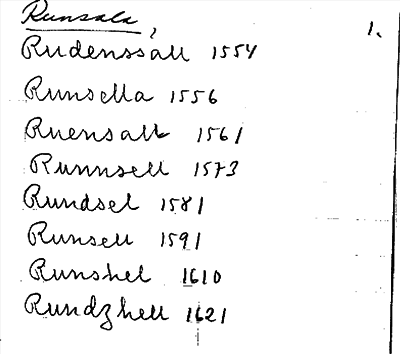 Runsala, 1.
Rudenssall 1554
Runsella 1556
Ruensall 1561
Runnsell 1573
Rundsel 1581
Runsell 1591
Runshel 1610
Rundzhell 1621